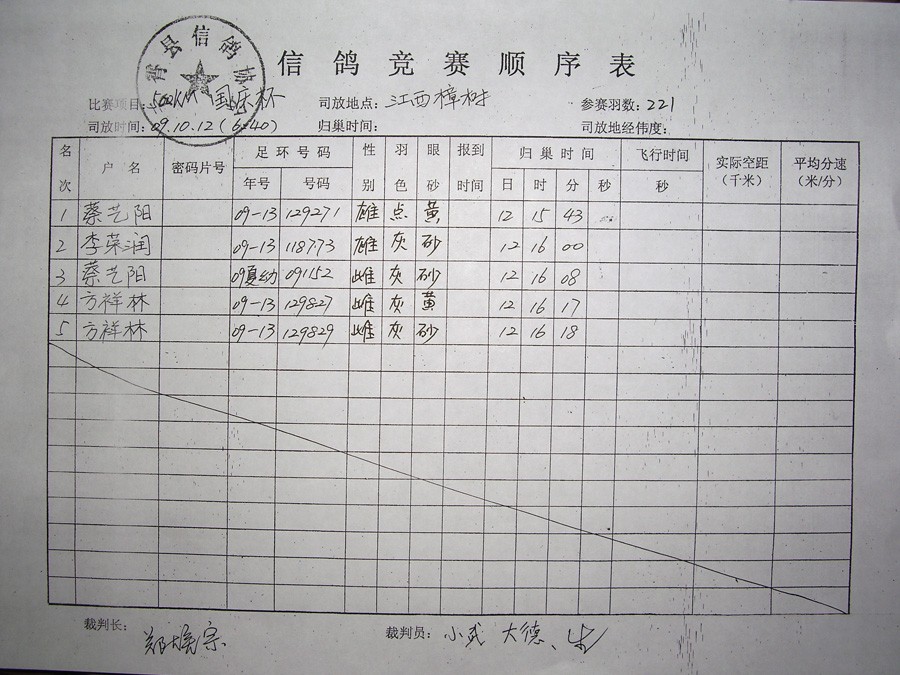 县信鸽协
信鸽竞赛顺序表
比赛项目：500KM 国庆杯 司放地点：江西樟树 参赛羽数：221
司放时间：09.10.12（6:40） 归巢时间： 司放地经纬度：
名次 户名 密码片号 足环号码 性别 羽色 眼砂 报到时间 归巢时间 飞行时间 实际空距（千米） 平均分速（米/分）
年号 号码 日 时 分 秒 秒
1 蔡艺阳 09-13 129271 雄 点 黄 12 15 43
2 李荣润 09-13 118773 雄 灰 砂 12 16 00
3 蔡艺阳 09夏幼 091152 雌 灰 砂 12 16 08
4 方祥林 09-13 129827 雌 灰 黄 12 16 17
5 方祥林 09-13 129829 雌 灰 砂 12 16 18
裁判长： 裁判员：小武 大德、